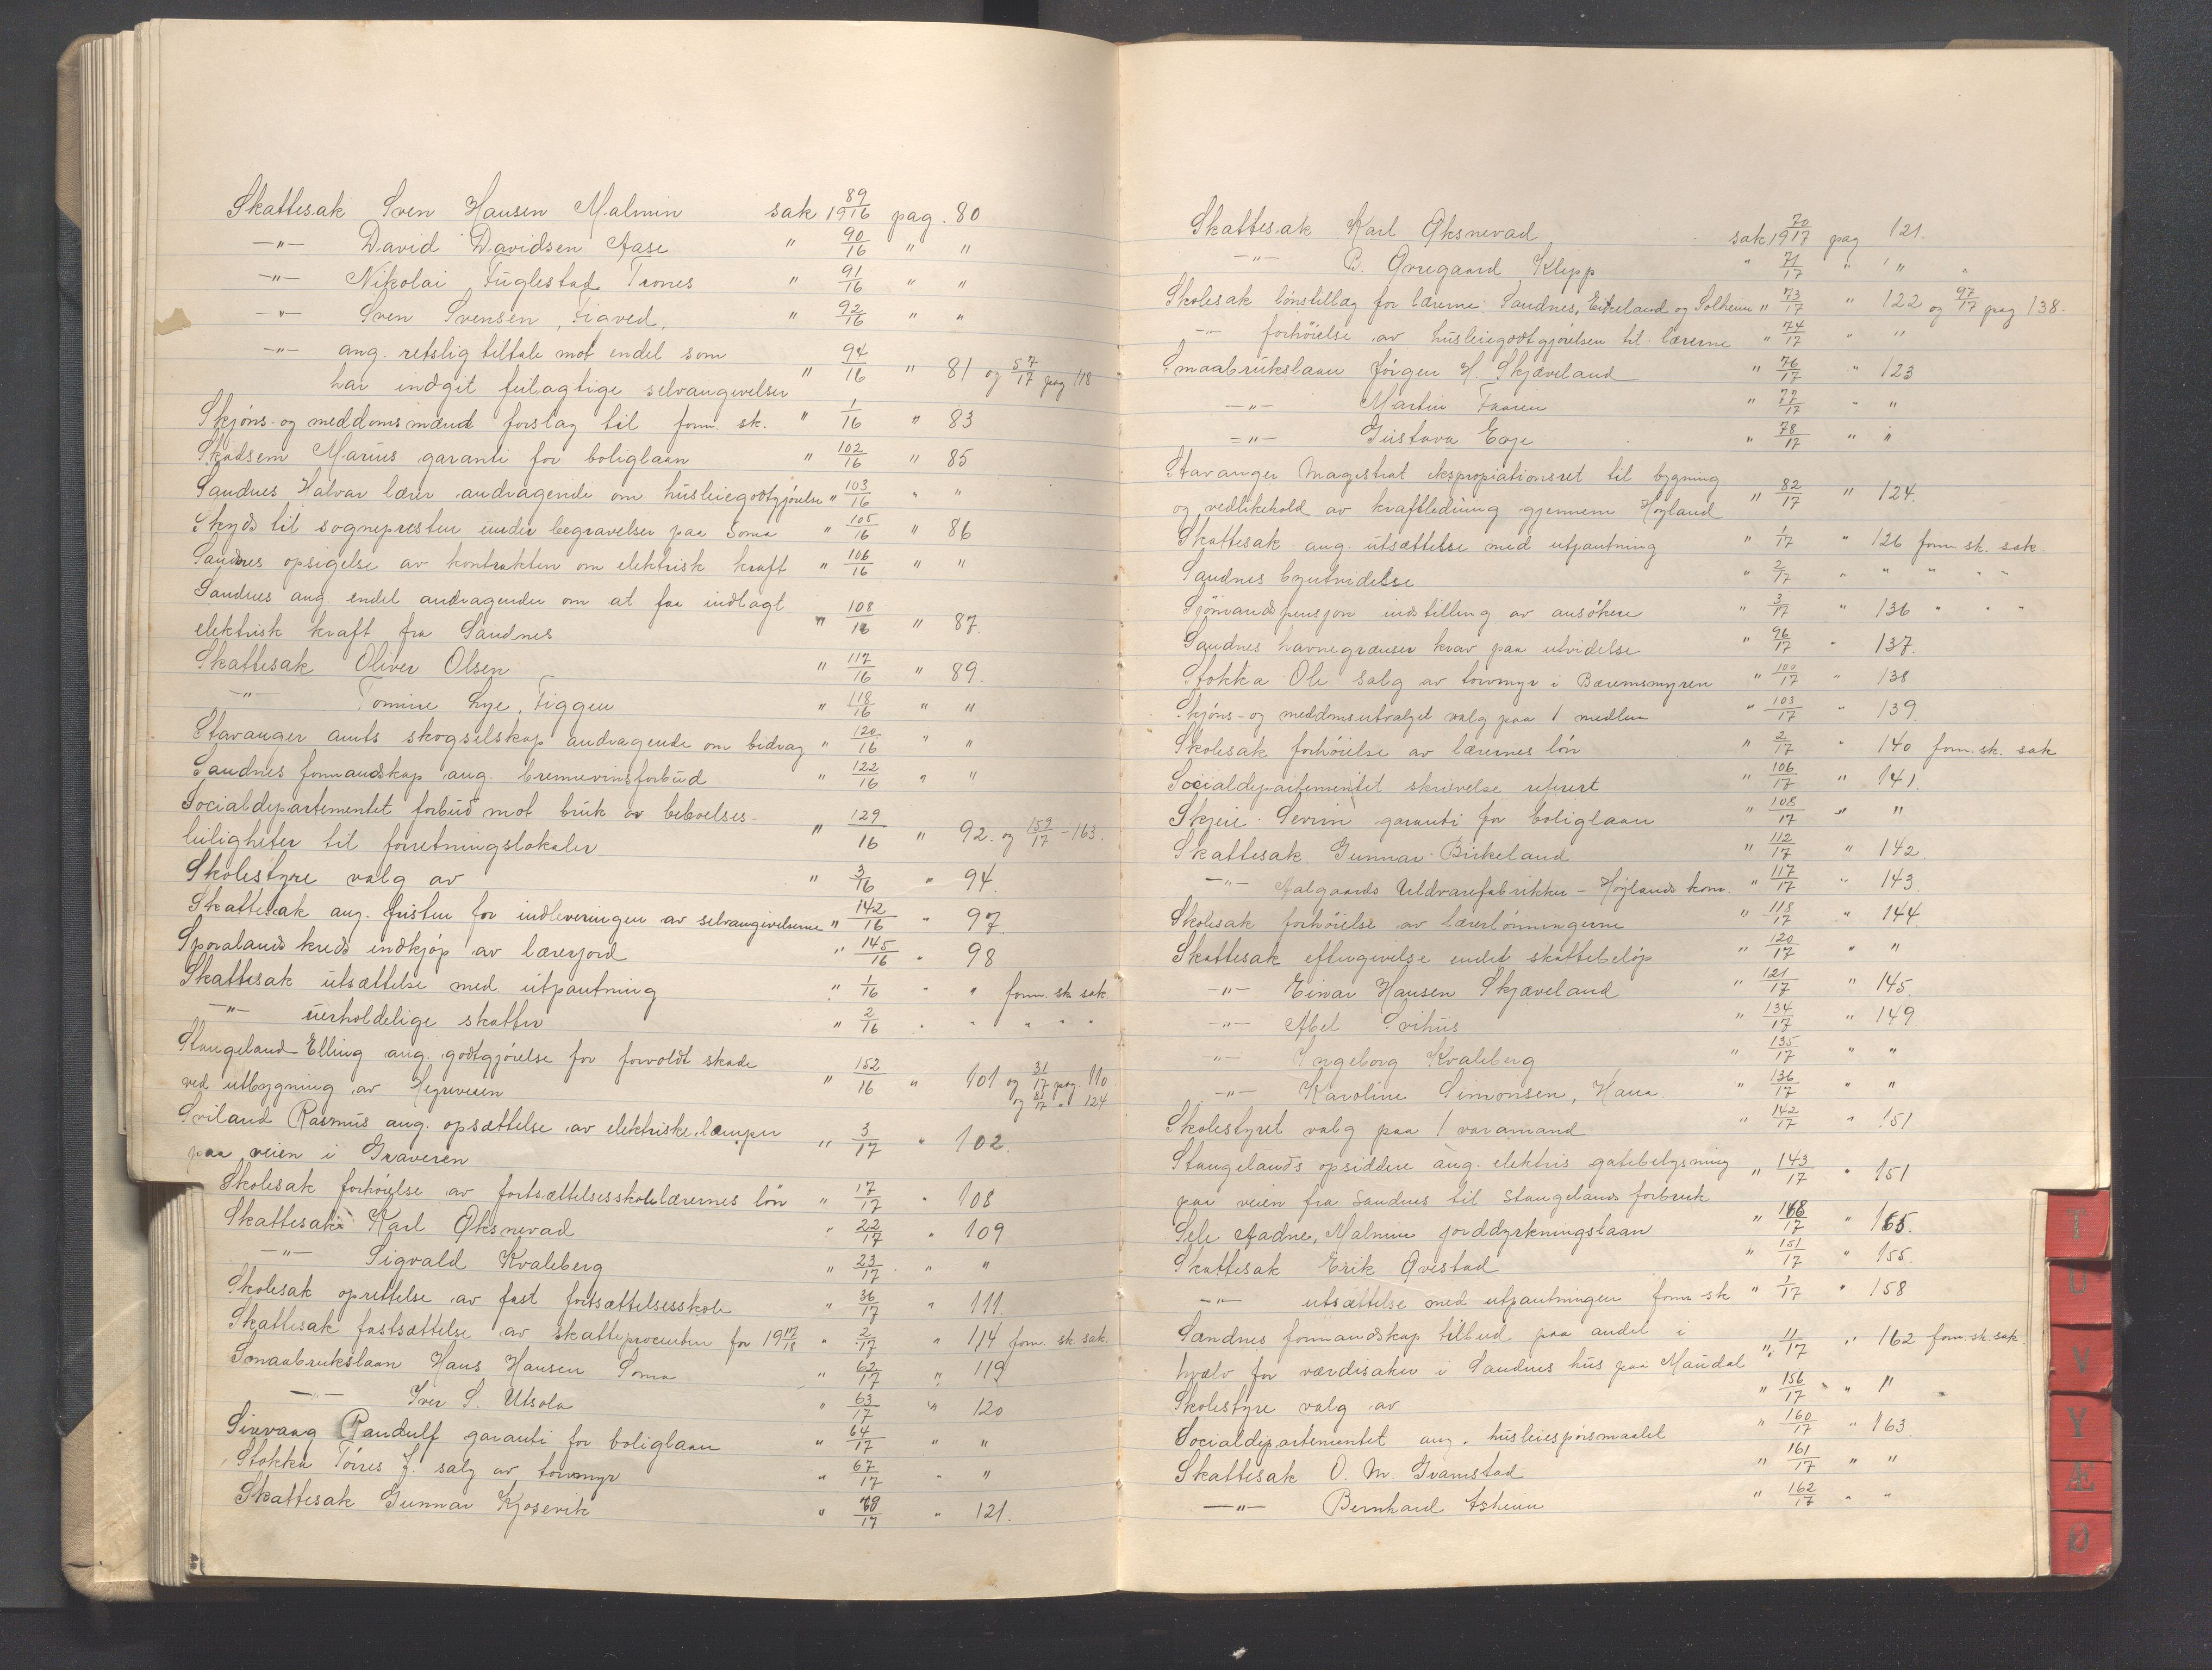 Skattesak Sven Hansen Malmin sak 89/1916 pag. 80
—"— David Davidsen Aase " 90/16 " "
—"— Nikolai Fuglestad Trones " 91/16 " "
—"— Sven Svensen, Figved, " 92/16 " "
—"— ang. retslig tiltale mot endel som
har indgit feilagtige selvangivelser " 94/16 " 81 og 57/17 pag 118
Skjöns- og meddomsmænd forslag til form. sk. " 1/16 " 83
Skadsem Marius garanti for boliglaan " 102/16 " 85
Sandnes Halvar lærer andragende om husleiegodtgjörelse " 103/16 " "
Skyds til sognepresten under begravelser paa Soma " 105/16 " 86
Sandnes opsigelse av kontrakten om elektrisk kraft " 106/16 " "
Sandnes ang. endel andragender om at faa indlagt
elektrisk kraft fra Sandnes " 108/16 " 87.
Skattesak Oliver Olsen " 117/16 " 89.
—"— Tomine Lye, Figgen " 118/16 " "
Stavanger amts skogselskap andragende om bidrag " 120/16 " "
Sandnes formandskap ang. brennevinsforbud " 122/16 " "
Socialdepartementet forbud mot bruk av beboelses-
leiligheter til forretningslokaler " 129/16 " 92. og 159/17 - 163.
Skolestyre valg av " 3/16 " 94.
Skattesak ang. fristen for indleveringen av selvangivelserne " 142/16 " 97.
Sporalands kreds indkjöp av lærerjord " 145/16 " 98
Skattesak utsættelse med utpantning " 1/16 " " form. sk. sak
—"— uerholdelige skatter " 2/16 " " " " "
Stangeland Elling ang. godtgjörelse for forvoldt skade
ved utbygning av Heyreveien " 152/16 " 101 og 31/17 pag. 110
og 81/17 " 124
Sviland Rasmus ang. opsættelse av elektriske lamper
paa veien i Graveren " 3/17 " 102.
Skolesak forhöielse av fortsættelsesskolelærernes lön " 17/17 " 108
Skattesak Karl Öksnevad " 22/17 " 109
—"— Sigvald Kvaleberg " 23/17 " "
Skolesak oprettelse av fast fortsættelsesskole " 36/17 " 111.
Skattesak fastsættelse av skatteprocenten for 1917/18 " 2/17 " 114 form. sk. sak.
Smaabrukslaan Hans Hansen Soma " 62/17 " 119
—"— Iver S. Utsola " 63/17 " 120
Sirevaag Randulf garanti for boliglaan " 64/17 " "
Stokka Töres J. salg av torvmyr " 67/17 " "
Skattesak Gunnar Kjosevik " 69/17 " 121.
Skattesak Karl Øksnevad sak 70/1917 pag 121.
—"— B. Øvregaard Klepp " 71/17 " " "
Skolesak lönstillæg for lærerne Sandnes, Eikeland og Solheim " 73/17 " 122 og 97/17 pag 138.
—"— forhöielse av husleiegodtgjörelsen til lærerne " 74/17 " "
Smaabrukslaan Jörgen H. Skjæveland " 76/17 " 123
—"— Martin Faaren " 77/17 " "
—"— Gustava Eoje " 78/17 " "
Stavanger Magistrat ekspropiationsret til bygning
og vedlikehold av kraftledning gjennem Höyland " 82/17 " 124.
Skattesak ang. utsættelse med utpantning " 1/17 " 126 form. sk. sak.
Sandnes byutvidelse " 2/17 " " " " "
Sjömandspensjon indstilling av ansökere " 3/17 " 136 " " "
Sandnes havnegrænser krav paa utvidelse " 96/17 " 137.
Stokka Ole salg av torvmyr i Bæremsmyren " 100/17 " 138
Skjöns- og meddomsutvalget valg paa 1 medlem " 103/17 " 139
Skolesak forhöielse av lærernes lön " 2/17 " 140 form. sk. sak
Socialdepartementet skrivelse referert " 106/17 " 141.
Skjeie Severin garanti for boliglaan " 108/17 " "
Skattesak Gunnar Birkeland " 112/17 " 142
—"— Aalgaards Uldvarefabrikker - Höylands kom. " 117/17 " 143
Skolesak forhöielse av lærerlönningerne " 118/17 " 144
Skattesak eftergivelse endel skattebelöp " 120/17 " "
—"— Einar Hansen Skjæveland " 121/17 " 145
—"— Abel Svihus " 134/17 " 149
—"— Ingeborg Kvaleberg " 135/17 " "
—"— Karoline Simonsen, Hana " 136/17 " "
Skolestyret valg paa 1 varamand " 142/17 " 151
Stangelands opsiddere ang. elektris gatebelysning
paa veien fra Sandnes til Stangelands forbruk " 143/17 " 151
Sele Aadne, Malmin jorddyrkningslaan " 168/17 " 165.
Skattesak Erik Övestad " 151/17 " 155.
—"— utsættelse med utpantningen form sk " 1/17 " 158
Sandnes formandskap tilbud paa andel i
hvælv for værdisaker i Sandnes hus paa Maudal " 11/17 " 162 form. sk. sak.
Skolestyre valg av " 156/17 " "
Socialdepartementet ang. husleiespörsmaalet " 160/17 " 163
Skattesak O. M. Gramstad " 161/17 " "
—"— Bernhard Asheim " 162/17 " "
T
U
V
Y
Æ
Ø